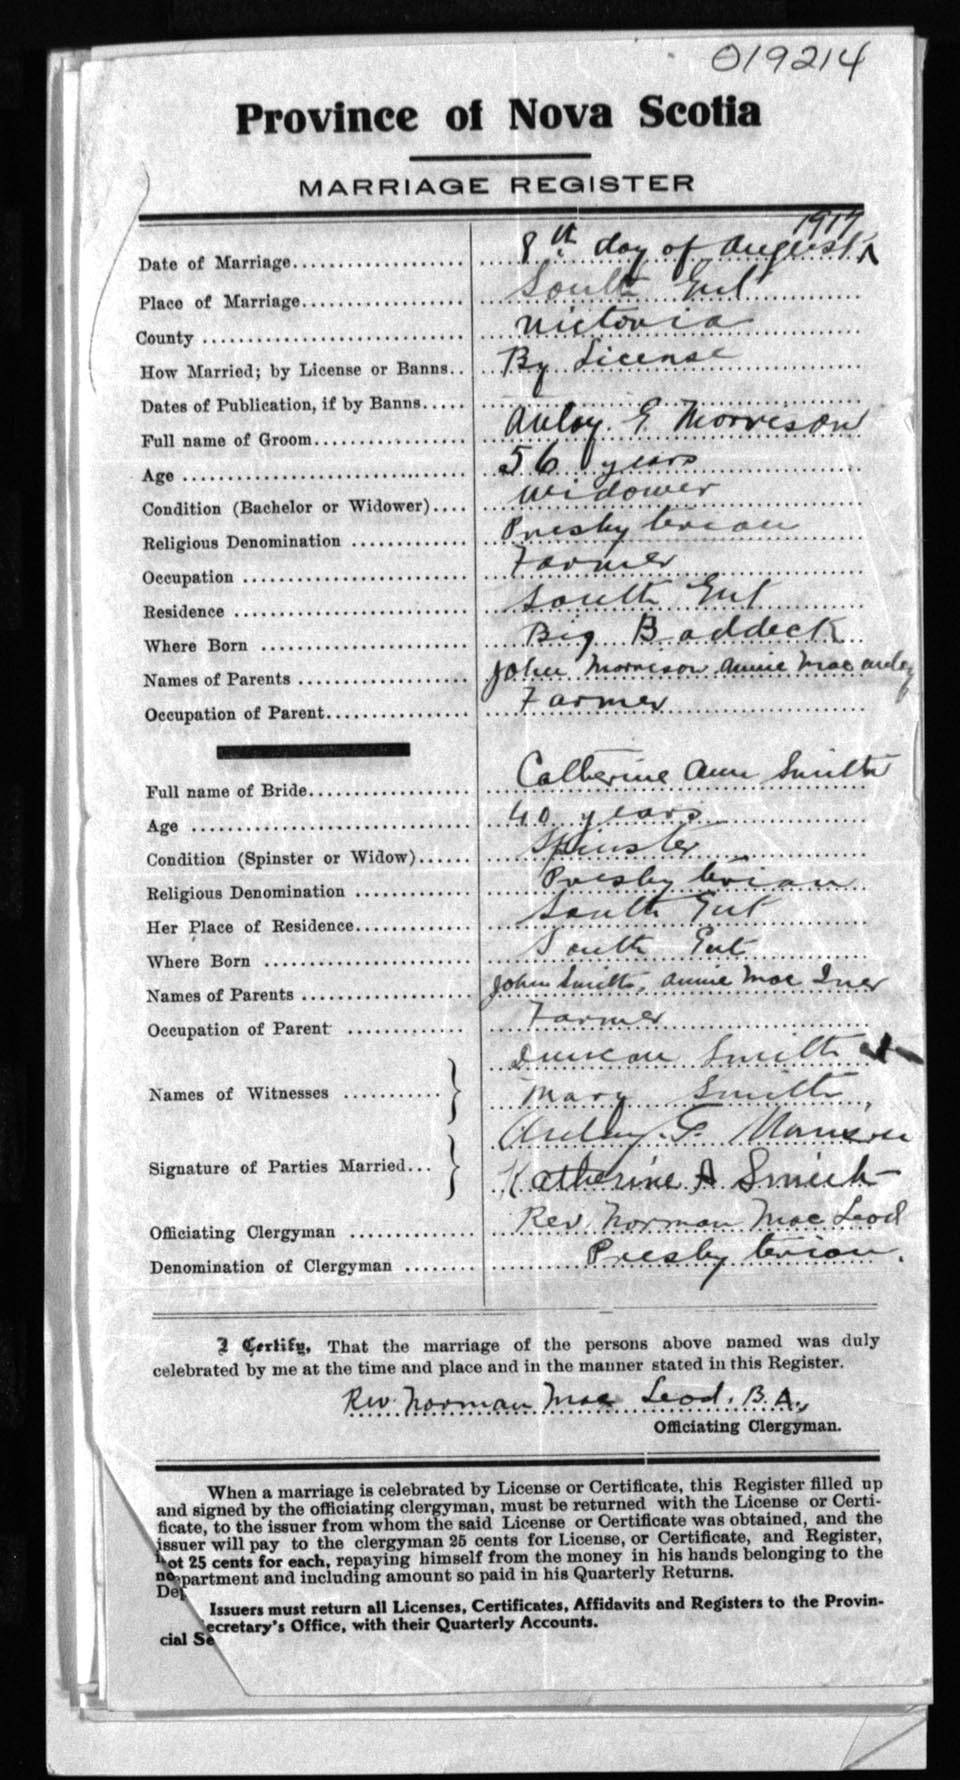 019214
Province of Nova Scotia
MARRIAGE REGISTER
1917
Date of Marriage 8th day of August
Place of Marriage South Gut
County Victoria
How Married; by License or Banns By License
Dates of Publication, if by Banns
Full name of Groom Auley. G. Morrison
Age 56 years
Condition (Bachelor or Widower) Widower
Religious Denomination Presbyterian
Occupation Farmer
Residence South Gut
Where Born Big Baddeck
Names of Parents John Morrison, Annie Macauley
Occupation of Parent Farmer
Full name of Bride Catherine Ann Smith
Age 40 years
Condition (Spinster or Widow) Spinster
Religious Denomination Presbyterian
Her Place of Residence South Gut
Where Born South Gut
Names of Parents John Smith, Annie Mac Iver
Occupation of Parent Farmer
Duncan Smith
Names of Witnesses
Mary Smith
Auley. G. Morrison
Signature of Parties Married
Katherine A Smith
Officiating Clergyman Rev. Norman Mac Leod
Denomination of Clergyman Presbyterian.
I Certify, That the marriage of the persons above named was duly
celebrated by me at the time and place and in the manner stated in this Register.
Rev. Norman Mac Leod. B.A.,
Officiating Clergyman.
When a marriage is celebrated by License or Certificate, this Register filled up
and signed by the officiating clergyman, must be returned with the License or Certi-
ficate, to the issuer from whom the said License or Certificate was obtained, and the
issuer will pay to the clergyman 25 cents for License, or Certificate, and Register,
not 25 cents for each, repaying himself from the money in his hands belonging to the
Department and including amount so paid in his Quarterly Returns.
Issuers must return all Licenses, Certificates, Affidavits and Registers to the Provin-
cial Secretary's Office, with their Quarterly Accounts.